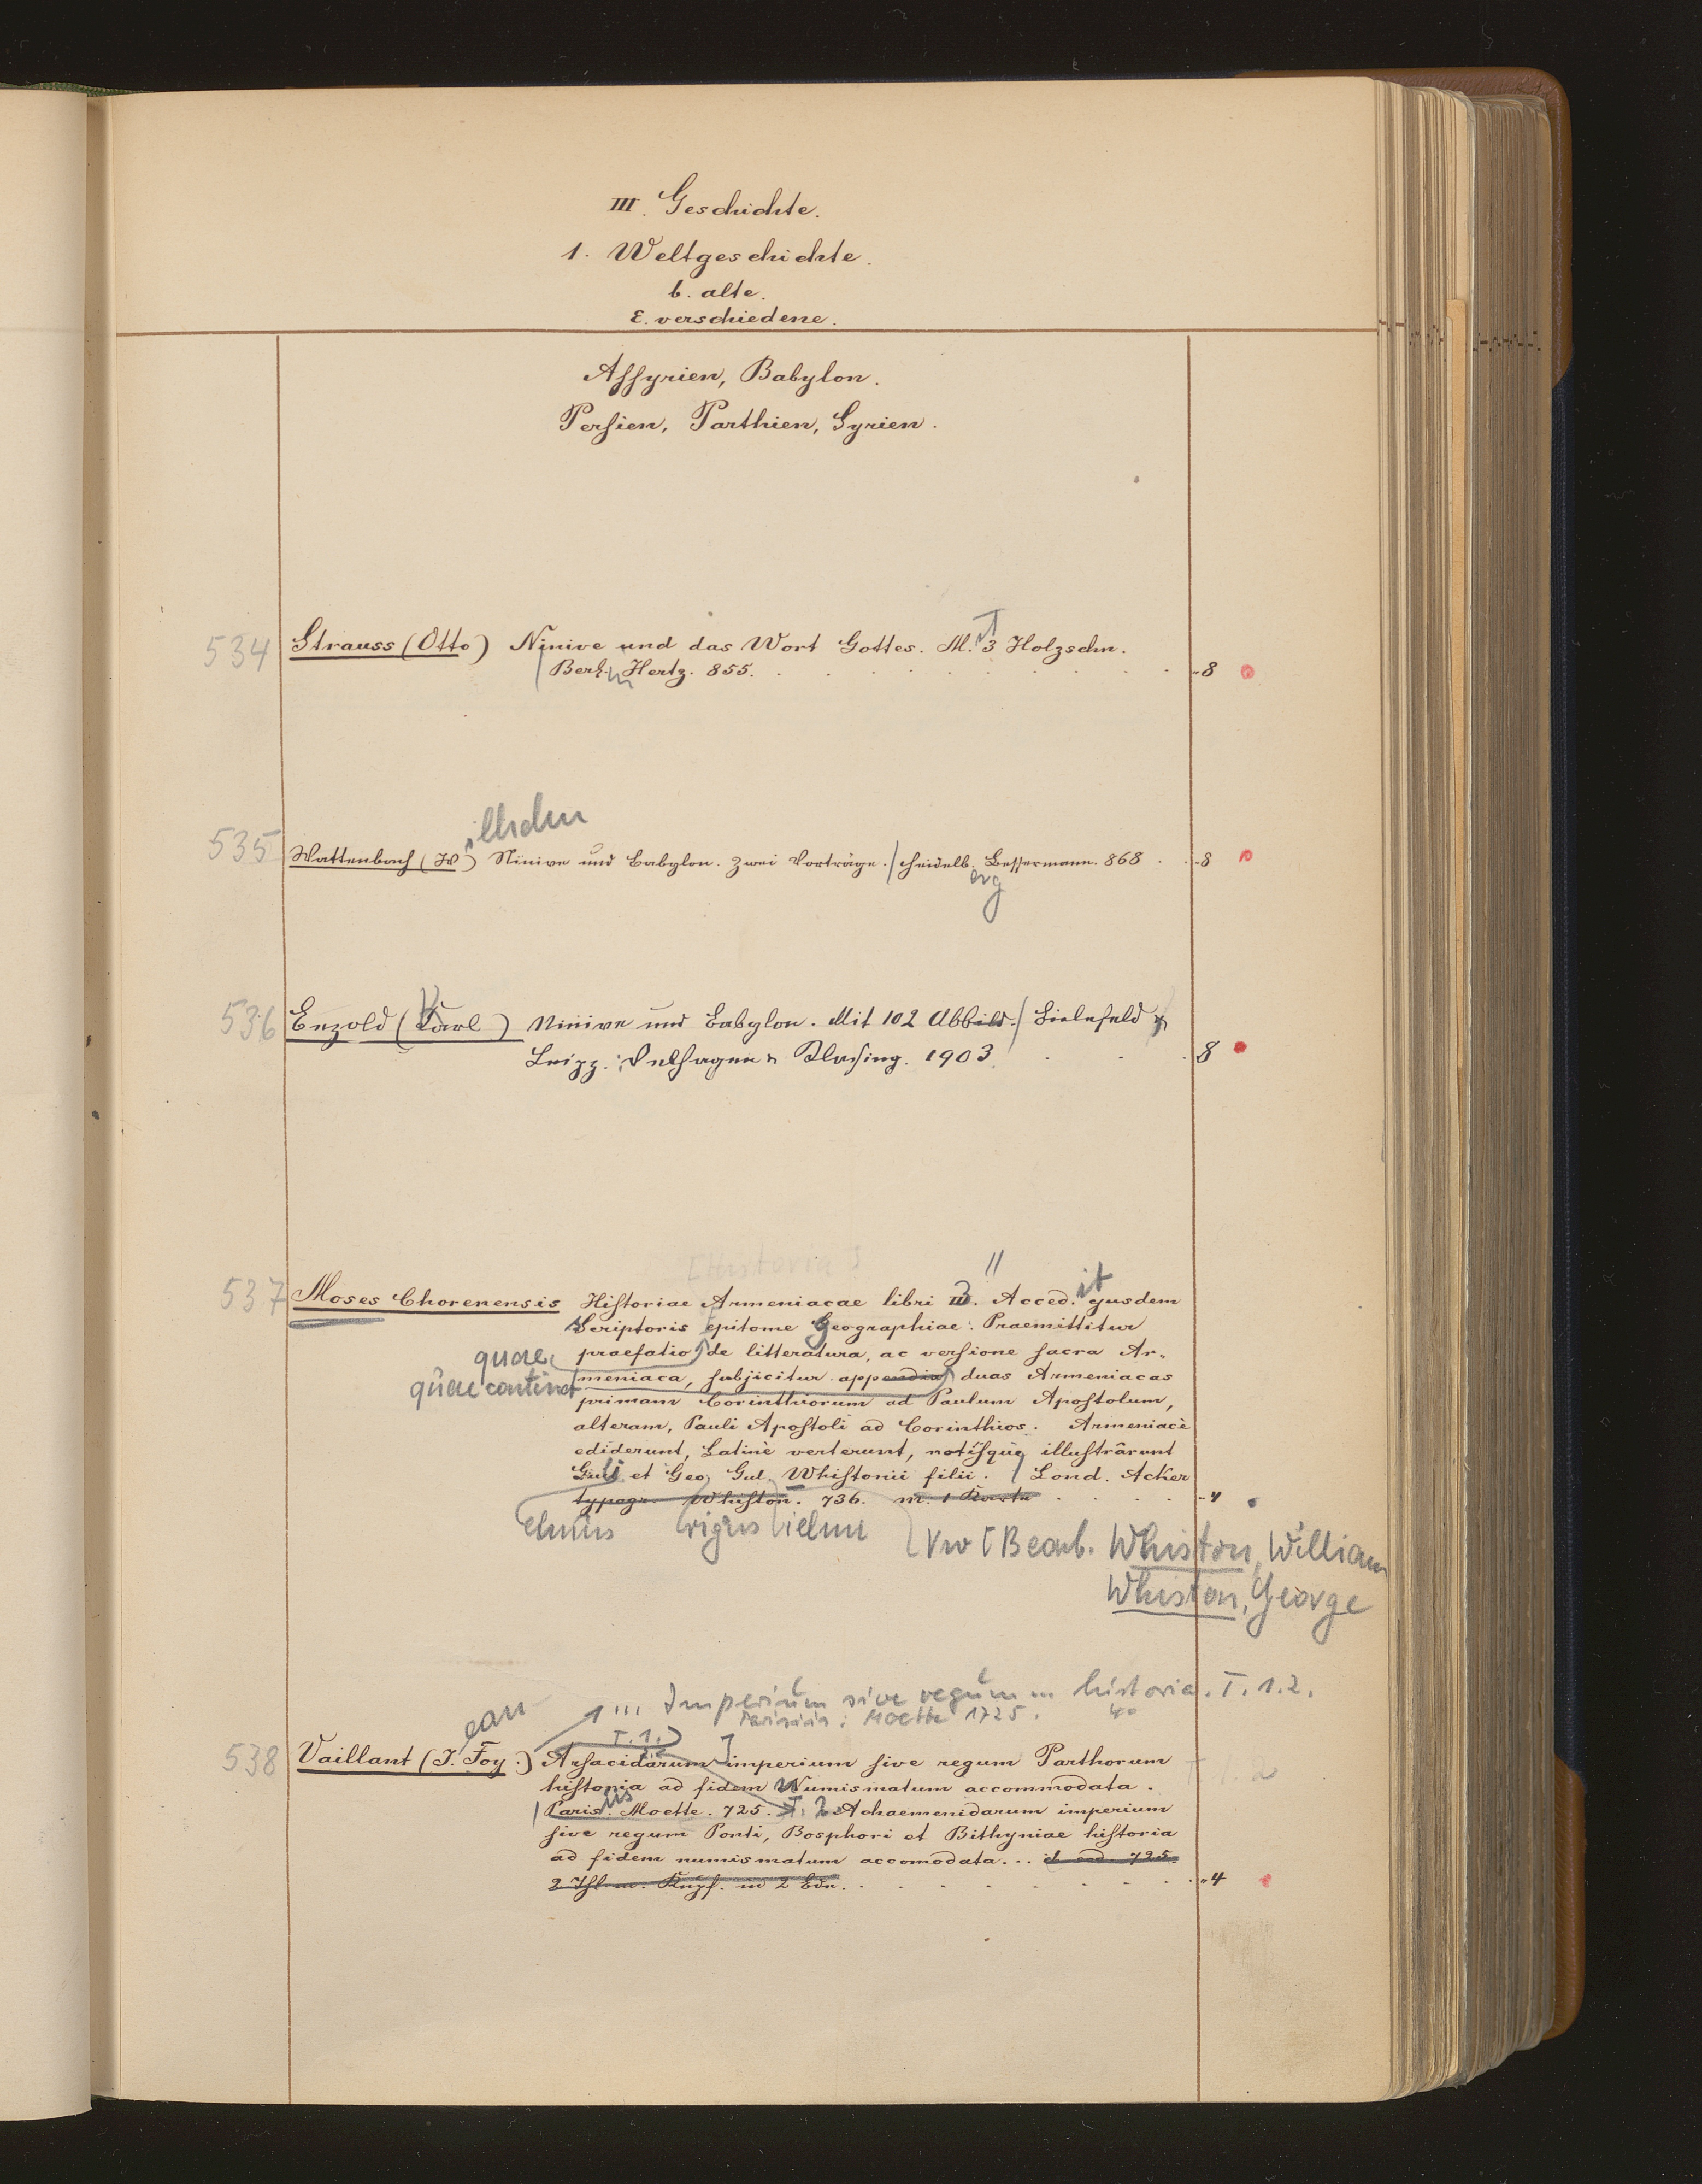 III. Geschichte.
1. Weltgeschichte.
b. alte.
ε. verschiedene.
Assyrien, Babylon.
Persien, Parthien, Syrien.
534 Strauss (Otto) Ninive und das Wort Gottes. M. 3 Holzschn.
Berl. Hertz. 855. 8
ilhelm
535 Wattenbach (W.) Ninive und Babylon. Zwei Vorträge. / Heidelb. Bassermann. 868 8
erg
536 Bezold (Karl) Ninive und Babylon. Mit 102 Abbild. / Bielefeld &
Leipz. Velhagen & Klasing. 1903 8
[Historia]
537 Moses Chorenensis Historiae Armeniacae libri III. Acced.it ejusdem
Scriptoris epitome Geographiae. Praemittitur
praefatio de litteratura, ac versione sacra Ar-
quae
meniaca, subjicitur appendix duas Armeniacas
quae continet
primam Corinthiorum ad Paulum Apostolum,
alteram, Pauli Apostoli ad Corinthios. Armeniacè
ediderunt, Latinè verterunt, notisque illustrârunt
Guli et Geo. Gul. Whistonii filii. / Lond. Acker
typogr. Whiston. 736. m. 1 Karte 4
elmus ielmi [Vw [Bearb. Whiston, William
Whiston, George
1 ... Imperium sive regum ... historia. T. 1.2.
Parisiis: Moette 1725. 4°
ean
T. 1.
538 Vaillant (J. Foy.) Arsacidarum imperium sive regum Parthorum
historia ad fidem Numismatum accommodata.
Paris.iis Moette. 725. T. 2 Achaemenidarum imperium
sive regum Ponti, Bosphori et Bithyniae historia
ad fidem numismatum accomodata... ib. eod. 725.
2 Thl. m. Kupf. in 2 Bdn. 4